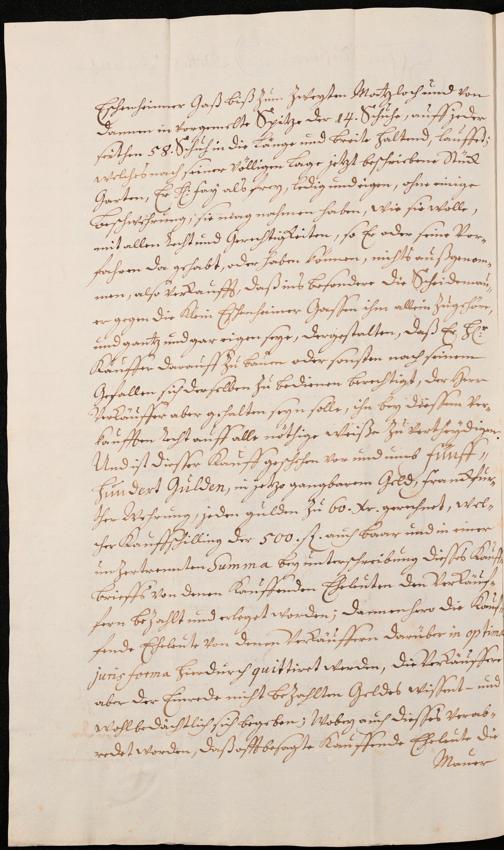 Eschenheimer Gaß biß zum zweyten Metzloch und von
dannen in vorgemelte Spitze der 14. Schuhe, auff jeder
seithen 58. Schuh in die Länge und breite haltend, lauffet;
welches nach seiner völligen Lage jetzt beschriebene Stück
Garten, Er, H: sey als frey, ledig und eigen, ohne einige
beschwehrung, sie mag nahmen haben, wie sie wolle,
mit allen Recht und Gerechtigkeiten, so Er oder seine Vor-
fahren da gehabt, oder haben können, nichts außgenom-
men, also Verkaufft, daß ins besondere die Scheidemau-
er gegen die Klein Eschenheimer Gassen ihm allein zugehöre,
und gantz und gar eigen seye, dergestalten, daß Er, Hr.
Käuffer darauff zu bauen oder sonsten nach seinem
Gefallen sich derselben zu bedienen berechtigt, der Herr
Verkäuffer aber gehalten seyn solle, ihn bey diessem Ver-
kaufften Recht auff alle nöthige Weiße zu vertheydigen.
Und ist diesser Kauff geschehen vor und umb fünff-
hundert Gulden, in jetzo gangbarem Geld, franckfur-
ther Wehrung, jeden gulden zu 60. Xr. gerechnet, wel-
cher Kauffschilling der 500. fl. auch baar und in einer
unzertrennten Summa bey unterschreibung diesses Kauff-
brieffs von denen Kauffenden Eheleuten den Verkäuf-
fern bezahlt und erleget worden; dannenhero die Kauf-
fende Eheleute von denen Verkäuffern darüber in optima
juris forma hierdurch quittiret werden, die Verkäuffere
aber der Einrede nicht bezahlten Geldes wissent- und
wohlbedächtlich sich begeben; Wobey auch diesses verab-
redet worden, daß offtbesagte Kauffende Eheleute die
Mauer